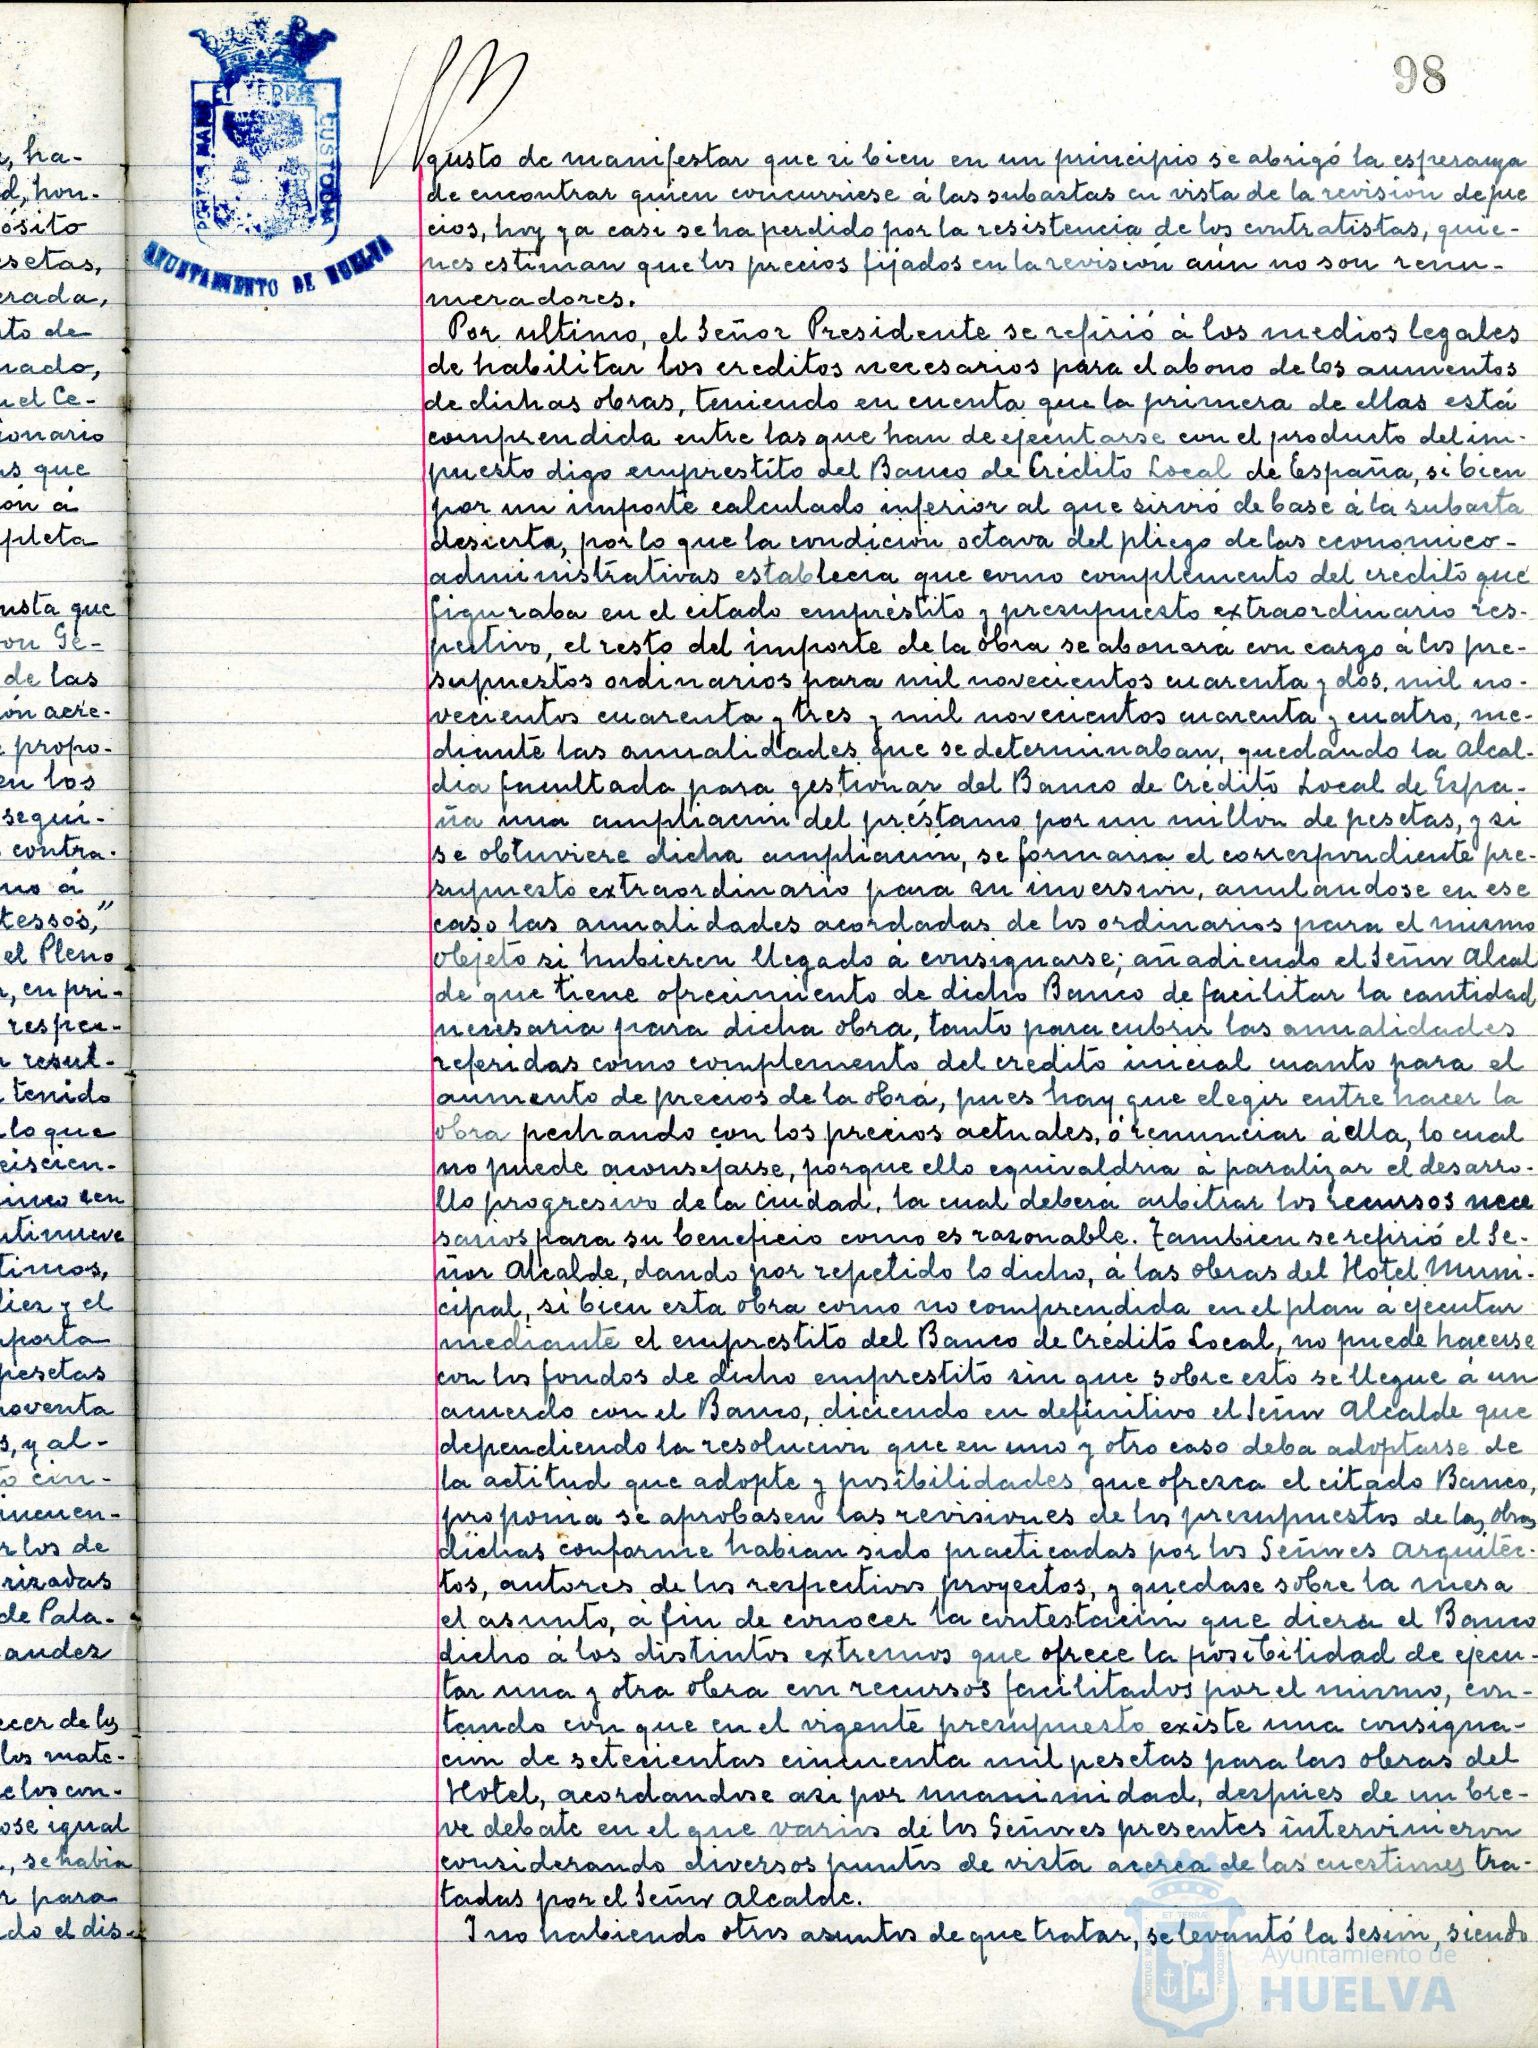 98
ET TERRÆ
PORTUS MARIS
CUSTODIA
AYUNTAMIENTO DE HUELVA
gusto de manifestar que si bien en un principio se abrigó la esperanza
de encontrar quien concurriese á las subastas en vista de la revision de pre
cios, hoy ya casi se ha perdido por la resistencia de los contratistas, quie-
nes estiman que los precios fijados en la revisión aún no son renu-
meradores.
Por ultimo, el Señor Presidente se refirió á los medios legales
de habilitar los creditos necesarios para el abono de los aumentos
de dichas obras, teniendo en cuenta que la primera de ellas está
comprendida entre las que han de ejecutarse con el producto del im-
puesto digo emprestito del Banco de Crédito Local de España, si bien
por un importe calculado inferior al que sirvió de base á la subasta
desierta, por lo que la condicion octava del pliego de las economico-
administrativas establecia que como complemento del credito que
figuraba en el citado empréstito y presupuesto extraordinario res-
pectivo, el resto del importe de la obra se abonara con cargo á los pre-
supuestos ordinarios para mil novecientos cuarenta y dos, mil no-
vecientos cuarenta y tres y mil novecientos cuarenta y cuatro, me-
diante las anualidades que se determinaban, quedando la Alcal-
dia facultada para gestionar del Banco de Crédito Local de Espa-
ña una ampliacion del préstamo por un millon de pesetas, y si
se obtuviere dicha ampliacion, se formaria el correspondiente pre-
supuesto extraordinario para su inversion, anulandose en ese
caso las anualidades acordadas de los ordinarios para el mismo
objeto si hubieren llegado á consignarse; añadiendo el Señor Alcal
de que tiene ofrecimiento de dicho Banco de facilitar la cantidad
necesaria para dicha obra, tanto para cubrir las anualidades
referidas como complemento del credito inicial cuanto para el
aumento de precios de la obra, pues hay que elegir entre hacer la
obra pechando con los precios actuales, ó renunciar á ella, lo cual
no puede aconsejarse, porque ello equivaldria á paralizar el desarro-
llo progresivo de la Ciudad, la cual deberá arbitrar los recursos nece
sarios para su beneficio como es razonable. Tambien se refirió el Se-
ñor Alcalde, dando por repetido lo dicho, á las obras del Hotel Muni-
cipal, si bien esta obra como no comprendida en el plan á ejecutar
mediante el emprestito del Banco de Crédito Local, no puede hacerse
con los fondos de dicho emprestito sin que sobre esto se llegue á un
acuerdo con el Banco, diciendo en definitivo el Señor Alcalde que
dependiendo la resolucion que en uno y otro caso deba adoptarse de
la actitud que adopte y posibilidades que ofrezca el citado Banco,
proponia se aprobasen las revisiones de los presupuestos de las obras
dichas conforme habian sido practicadas por los Señores Arquitec-
tos, autores de los respectivos proyectos, y quedase sobre la mesa
el asunto, á fin de conocer la contestacion que diera el Banco
dicho á los distintos extremos que ofrece la posibilidad de ejecu-
tar una y otra obra con recursos facilitados por el mismo, con-
tando con que en el vigente presupuesto existe una consigna-
ción de setecientas cincuenta mil pesetas para las obras del
Hotel, acordandose asi por unanimidad, despues de un bre-
ve debate en el que varios de los Señores presentes intervinieron
considerando diversos puntos de vista acerca de las cuestiones tra-
tadas por el Señor Alcalde.
Y no habiendo otros asuntos de que tratar, se levantó la Sesion, siendo
Ayuntamiento de
HUELVA